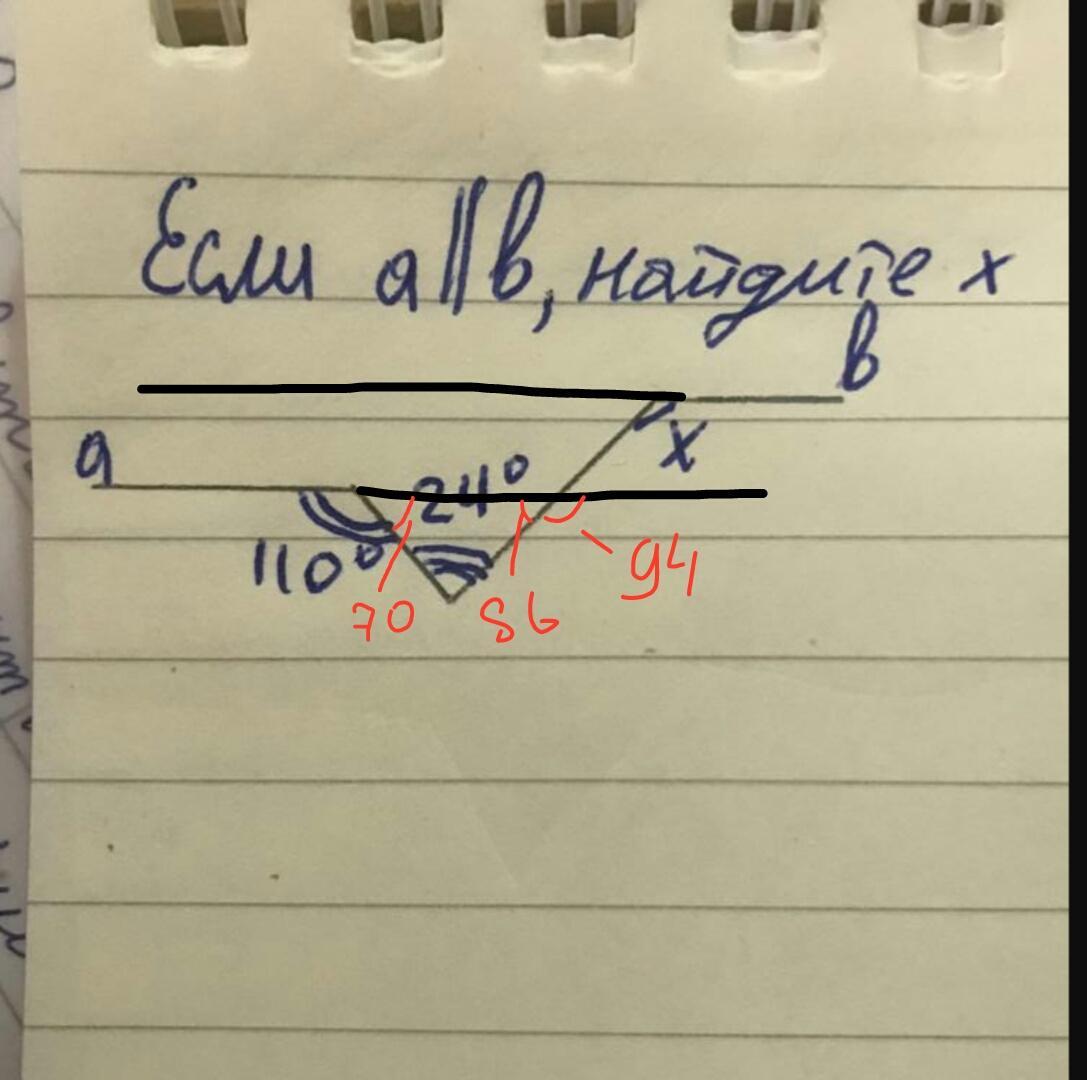 Если a||b, найдите x
b
a
24° x
110° 94
70 86